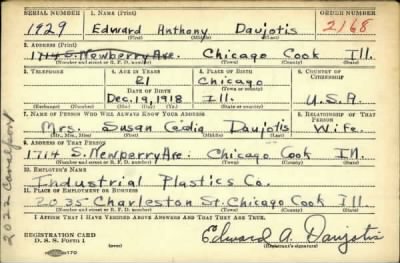 SERIAL NUMBER 1. NAME (Print) ORDER NUMBER
1929 Edward Anthony Daujotis 2168
(First) (Middle) (Last)
2. ADDRESS (Print)
1714 S. Newberry Ave. Chicago Cook Ill.
(Number and street or R. F. D. number) (Town) (County) (State)
3. TELEPHONE 4. AGE IN YEARS 5. PLACE OF BIRTH 6. COUNTRY OF CITIZENSHIP
21 Chicago
DATE OF BIRTH (Town or county)
Dec. 19, 1918 Ill. U.S.A.
(Exchange) (Number) (Mo.) (Day) (Yr.) (State or country)
7. NAME OF PERSON WHO WILL ALWAYS KNOW YOUR ADDRESS 8. RELATIONSHIP OF THAT PERSON
Mrs. Susan Daujotis Wife.
(Mr., Mrs., Miss) (First) (Middle) (Last)
9. ADDRESS OF THAT PERSON
1714 S. Newberry Ave. Chicago Cook Ill.
(Number and street or R. F. D. number) (Town) (County) (State)
10. EMPLOYER'S NAME
Industrial Plastics Co.
11. PLACE OF EMPLOYMENT OR BUSINESS
2035 Charleston St. Chicago Cook Ill.
(Number and street or R. F. D. number) (Town) (County) (State)
I AFFIRM THAT I HAVE VERIFIED ABOVE ANSWERS AND THAT THEY ARE TRUE.
REGISTRATION CARD
D. S. S. Form 1 Edward A. Daujotis
(Registrant's signature)
2022